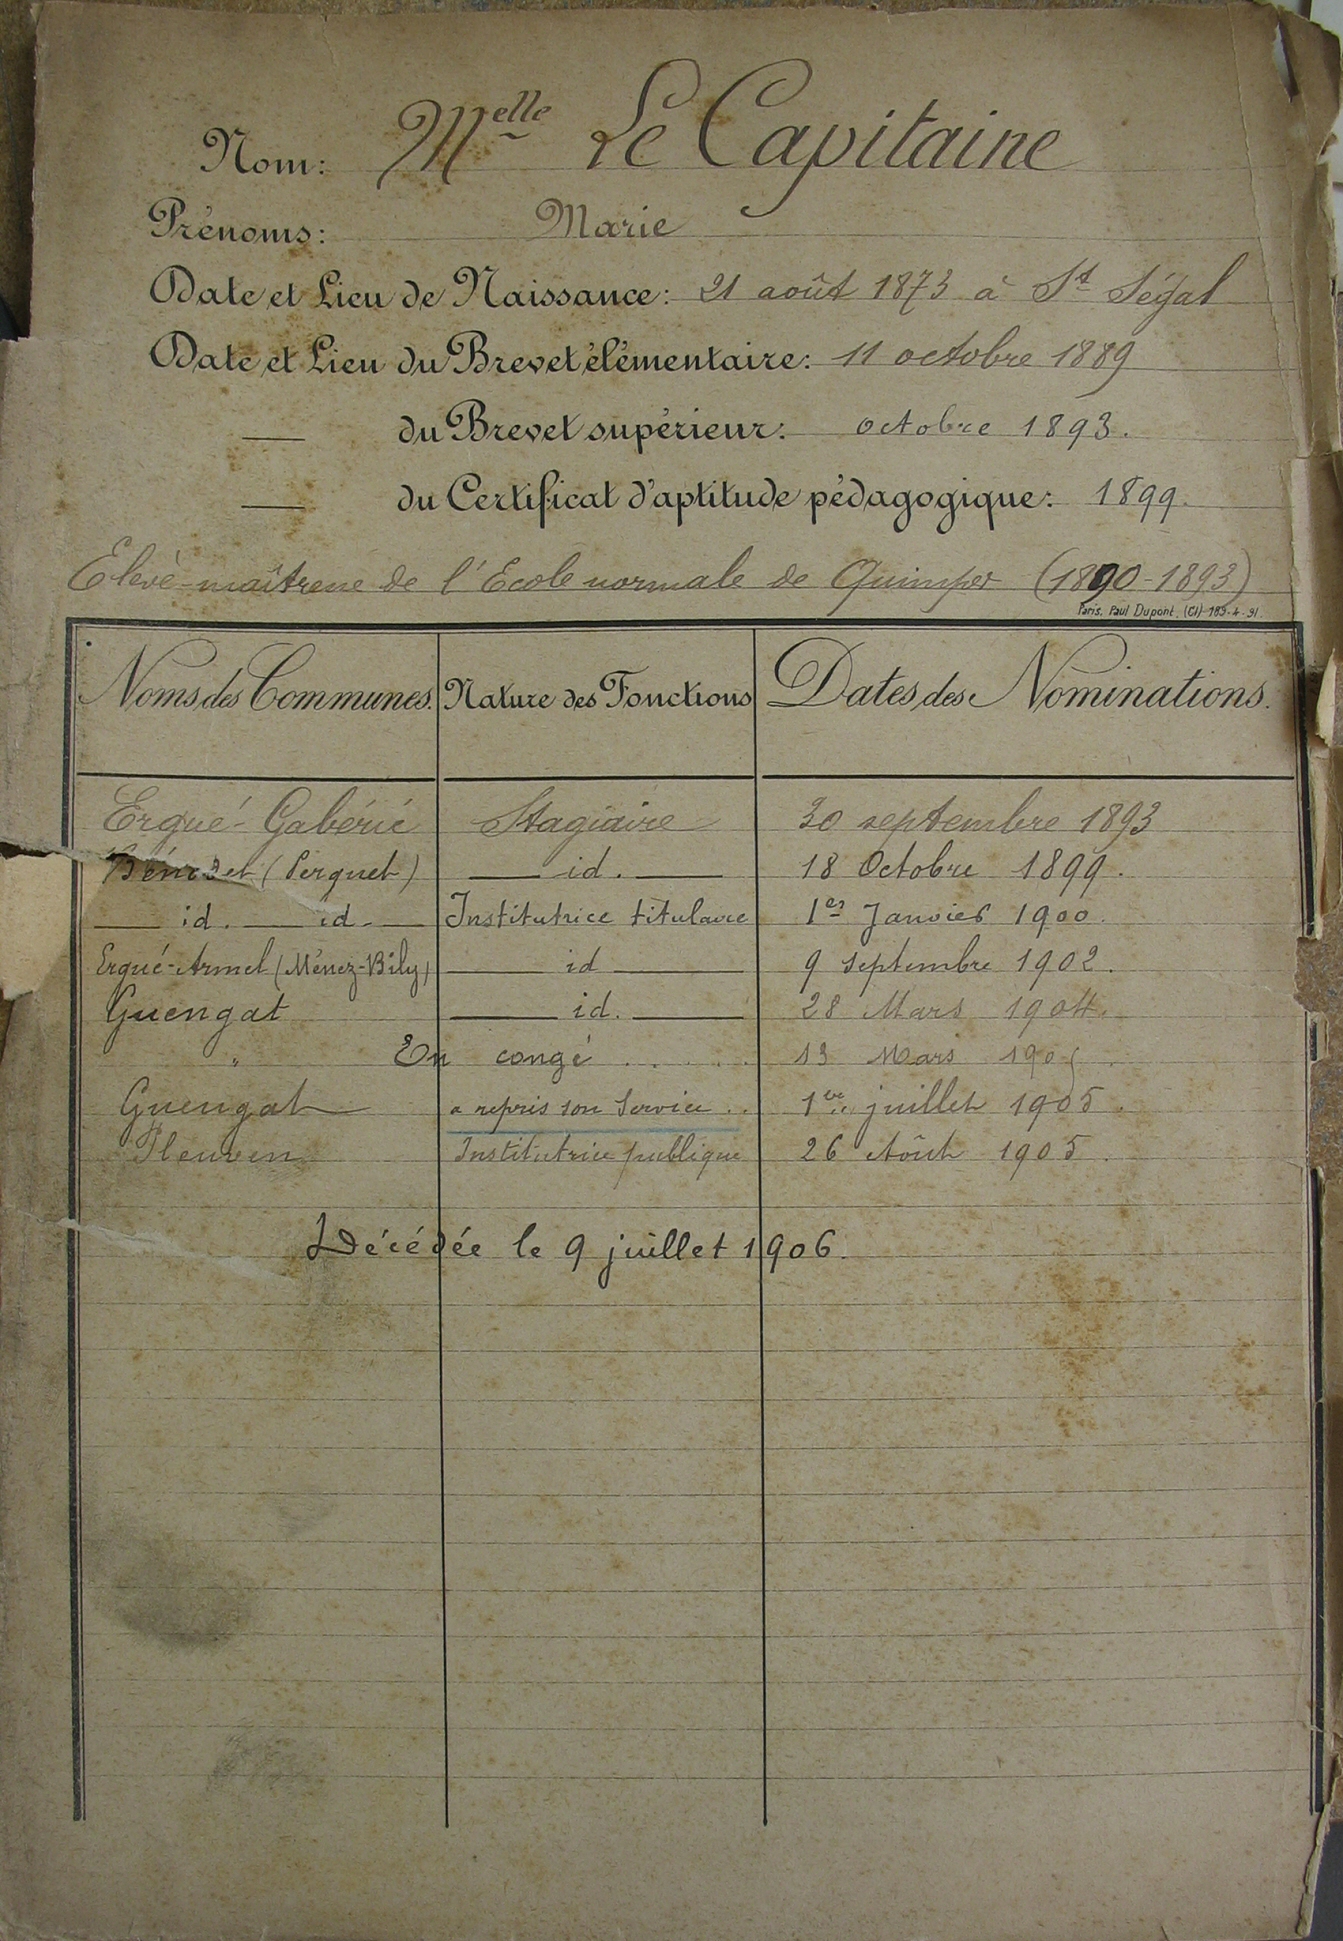 Nom: Melle Le Capitaine
Prénoms: Marie
Date et Lieu de Naissance: 21 août 1873 à St Ségal
Date et Lieu du Brevet élémentaire: 11 octobre 1889
— du Brevet supérieur: octobre 1893.
— du Certificat d'aptitude pédagogique: 1899.
Elève-maîtresse de l'Ecole normale de Quimper (1890-1893)
Paris. Paul Dupont. (Cl) 189.4.91.
Noms des Communes. Nature des Fonctions Dates des Nominations.
Ergué-Gabéric Stagiaire 30 septembre 1893
Bénodet (Perguet) — id. — 18 Octobre 1899.
— id. — id. — Institutrice titulaire 1er Janvier 1900.
Ergué-Armel (Ménez-Bily) — id — 9 Septembre 1902.
Guengat — id. — 28 Mars 1904.
" En congé . . . . . 13 Mars 1905
Guengat a repris son Service . . 1er juillet 1905.
Pleuven Institutrice publique 26 Août 1905.
Décédée le 9 juillet 1906.